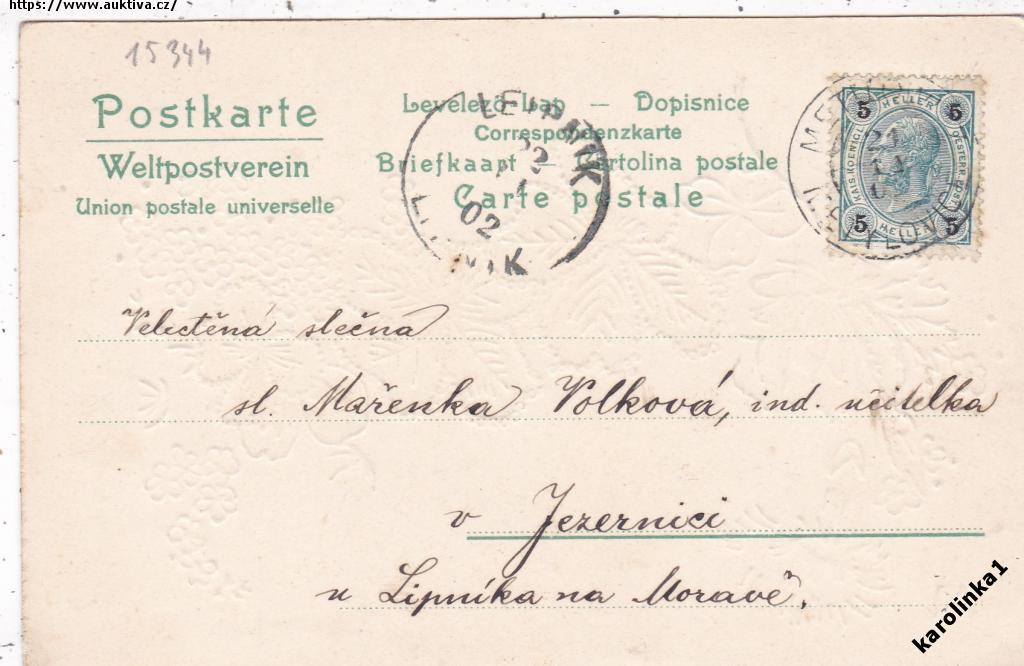 https://www.auktiva.cz/
15344
Postkarte
Weltpostverein
Union postale universelle
Levelező Lap — Dopisnice
Correspondenzkarte
Briefkaart — Cartolina postale
Carte postale
LEIPNIK
22
02
LIPNIK
5 HELLER 5
KAIS. KOENIGL. OESTERR. POST
5 HELLER 5
21
Velectěná slečna
sl. Mařenka Volková, ind. učitelka
v Jezernici
u Lipníka na Moravě.
karolinka1